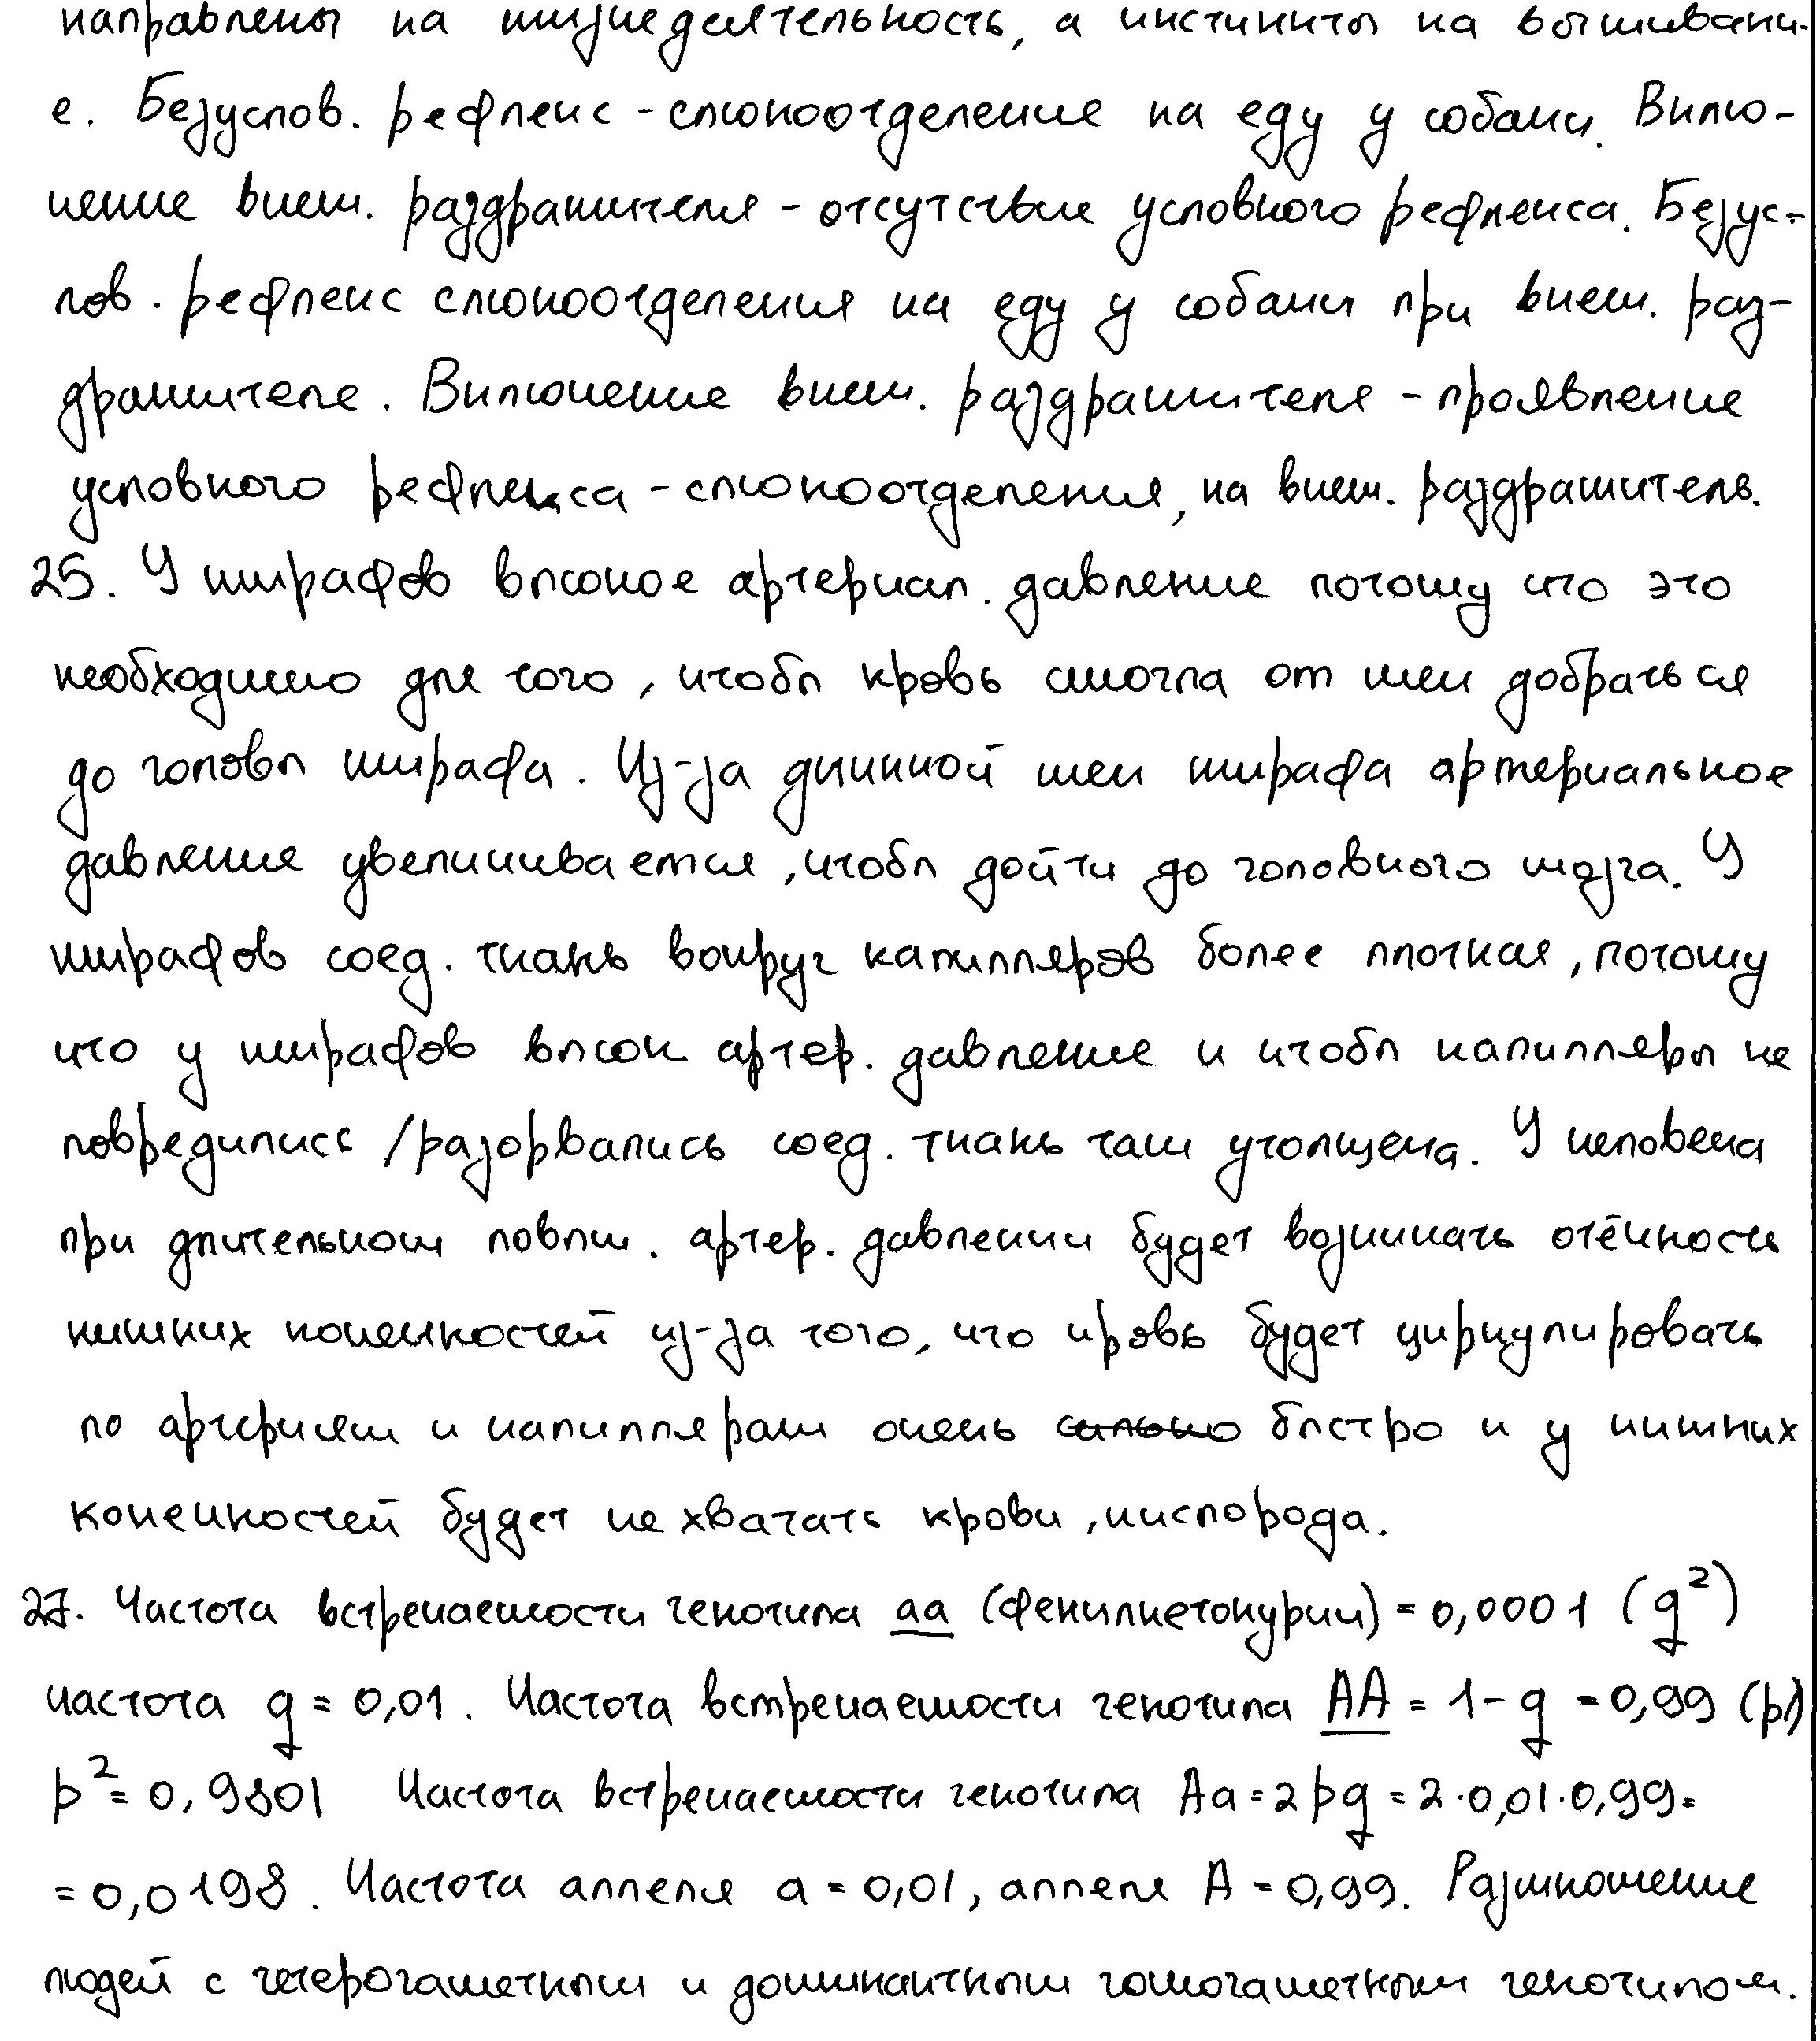 направлены на жизнедеятельность, а инстинкты на выживани-
е. Безуслов. рефлекс - слюноотделение на еду у собаки. Вклю-
чение внеш. раздражителя - отсутствие условного рефлекса. Безус-
лов. рефлекс слюноотделения на еду у собаки при внеш. раз-
дражителе. Включение внеш. раздражителя - проявление
условного рефлекса - слюноотделения, на внеш. раздражитель.
25. У жирафов высокое артериал. давление потому что это
необходимо для того, чтобы кровь смогла от шеи добраться
до головы жирафа. Из-за длинной шеи жирафа артериальное
давление увеличивается, чтобы дойти до головного мозга. У
жирафов соед. ткань вокруг капилляров более плотная, потому
что у жирафов высок артер. давление и чтобы капилляры не
повредились /разорвались соед. ткань там утолщена. У человека
при длительном повыш. артер. давлении будет возникать отёчность
нижних конечностей из-за того, что кровь будет циркулировать
по артериям и капиллярам очень сильно быстро и у нижних
конечностей будет не хватать крови, кислорода.
27. Частота встречаемости генотипа аа (фенилкетонурии) = 0,0001 (q²)
частота q = 0,01. Частота встречаемости генотипа АА = 1 - q = 0,99 (p)
p² = 0,9801 Частота встречаемости генотипа Аа = 2pq = 2·0,01·0,99=
= 0,0198. Частота аллеля а = 0,01, аллеля А = 0,99. Размножение
людей с гетерогаметным и доминантным гомогаметным генотипом.